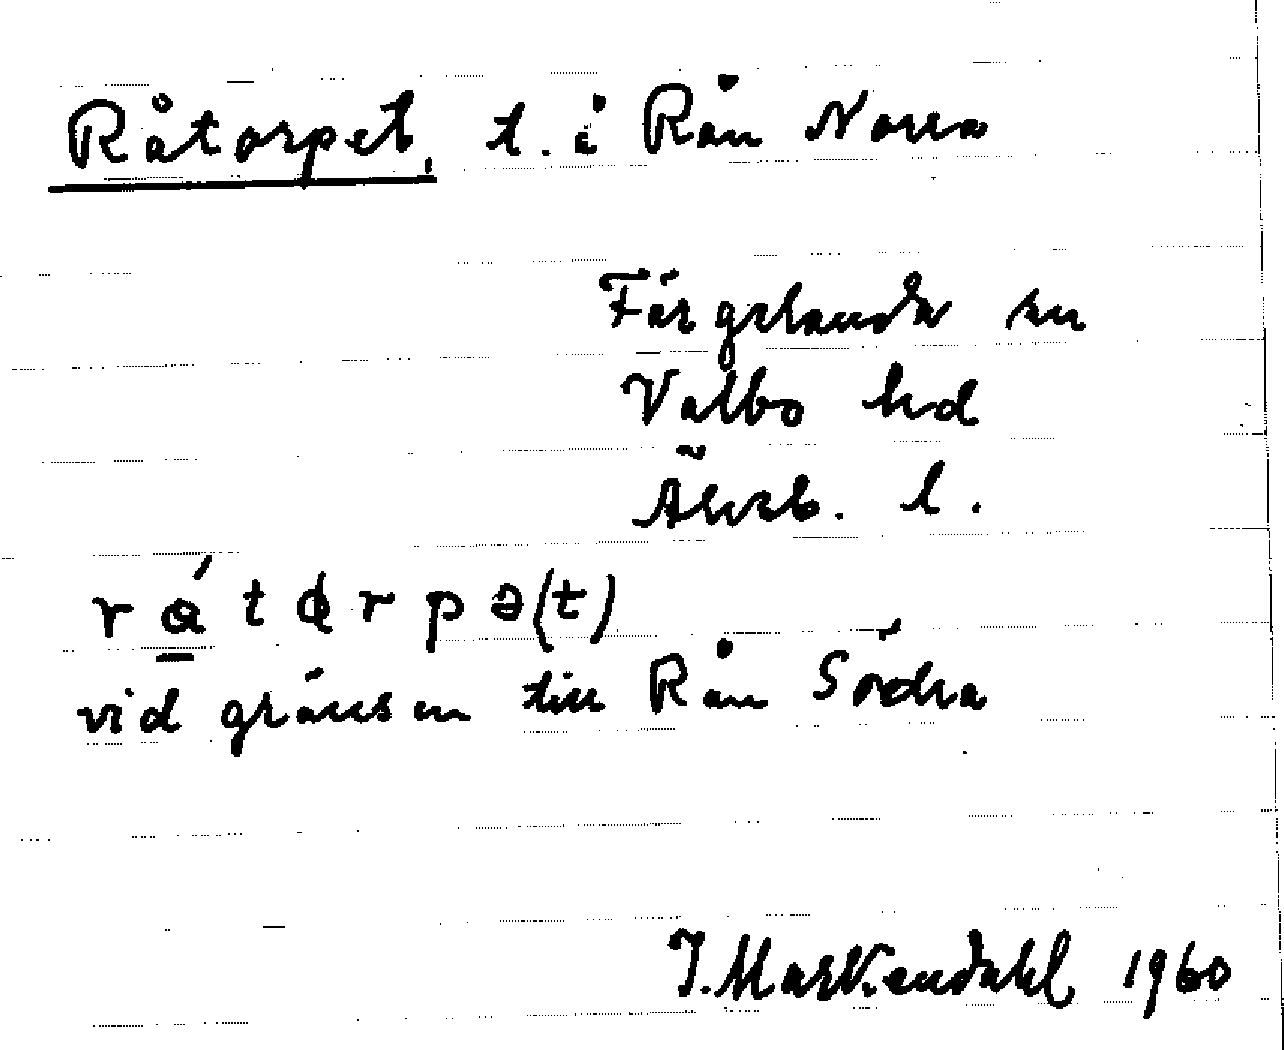 Råtorpet, t. i Rån Norra
Färgelanda sn
Valbo hd
Älvsb. l.
rá̱tɸrpə(t)
vid gränsen till Rån Södra
J. Markendahl 1960